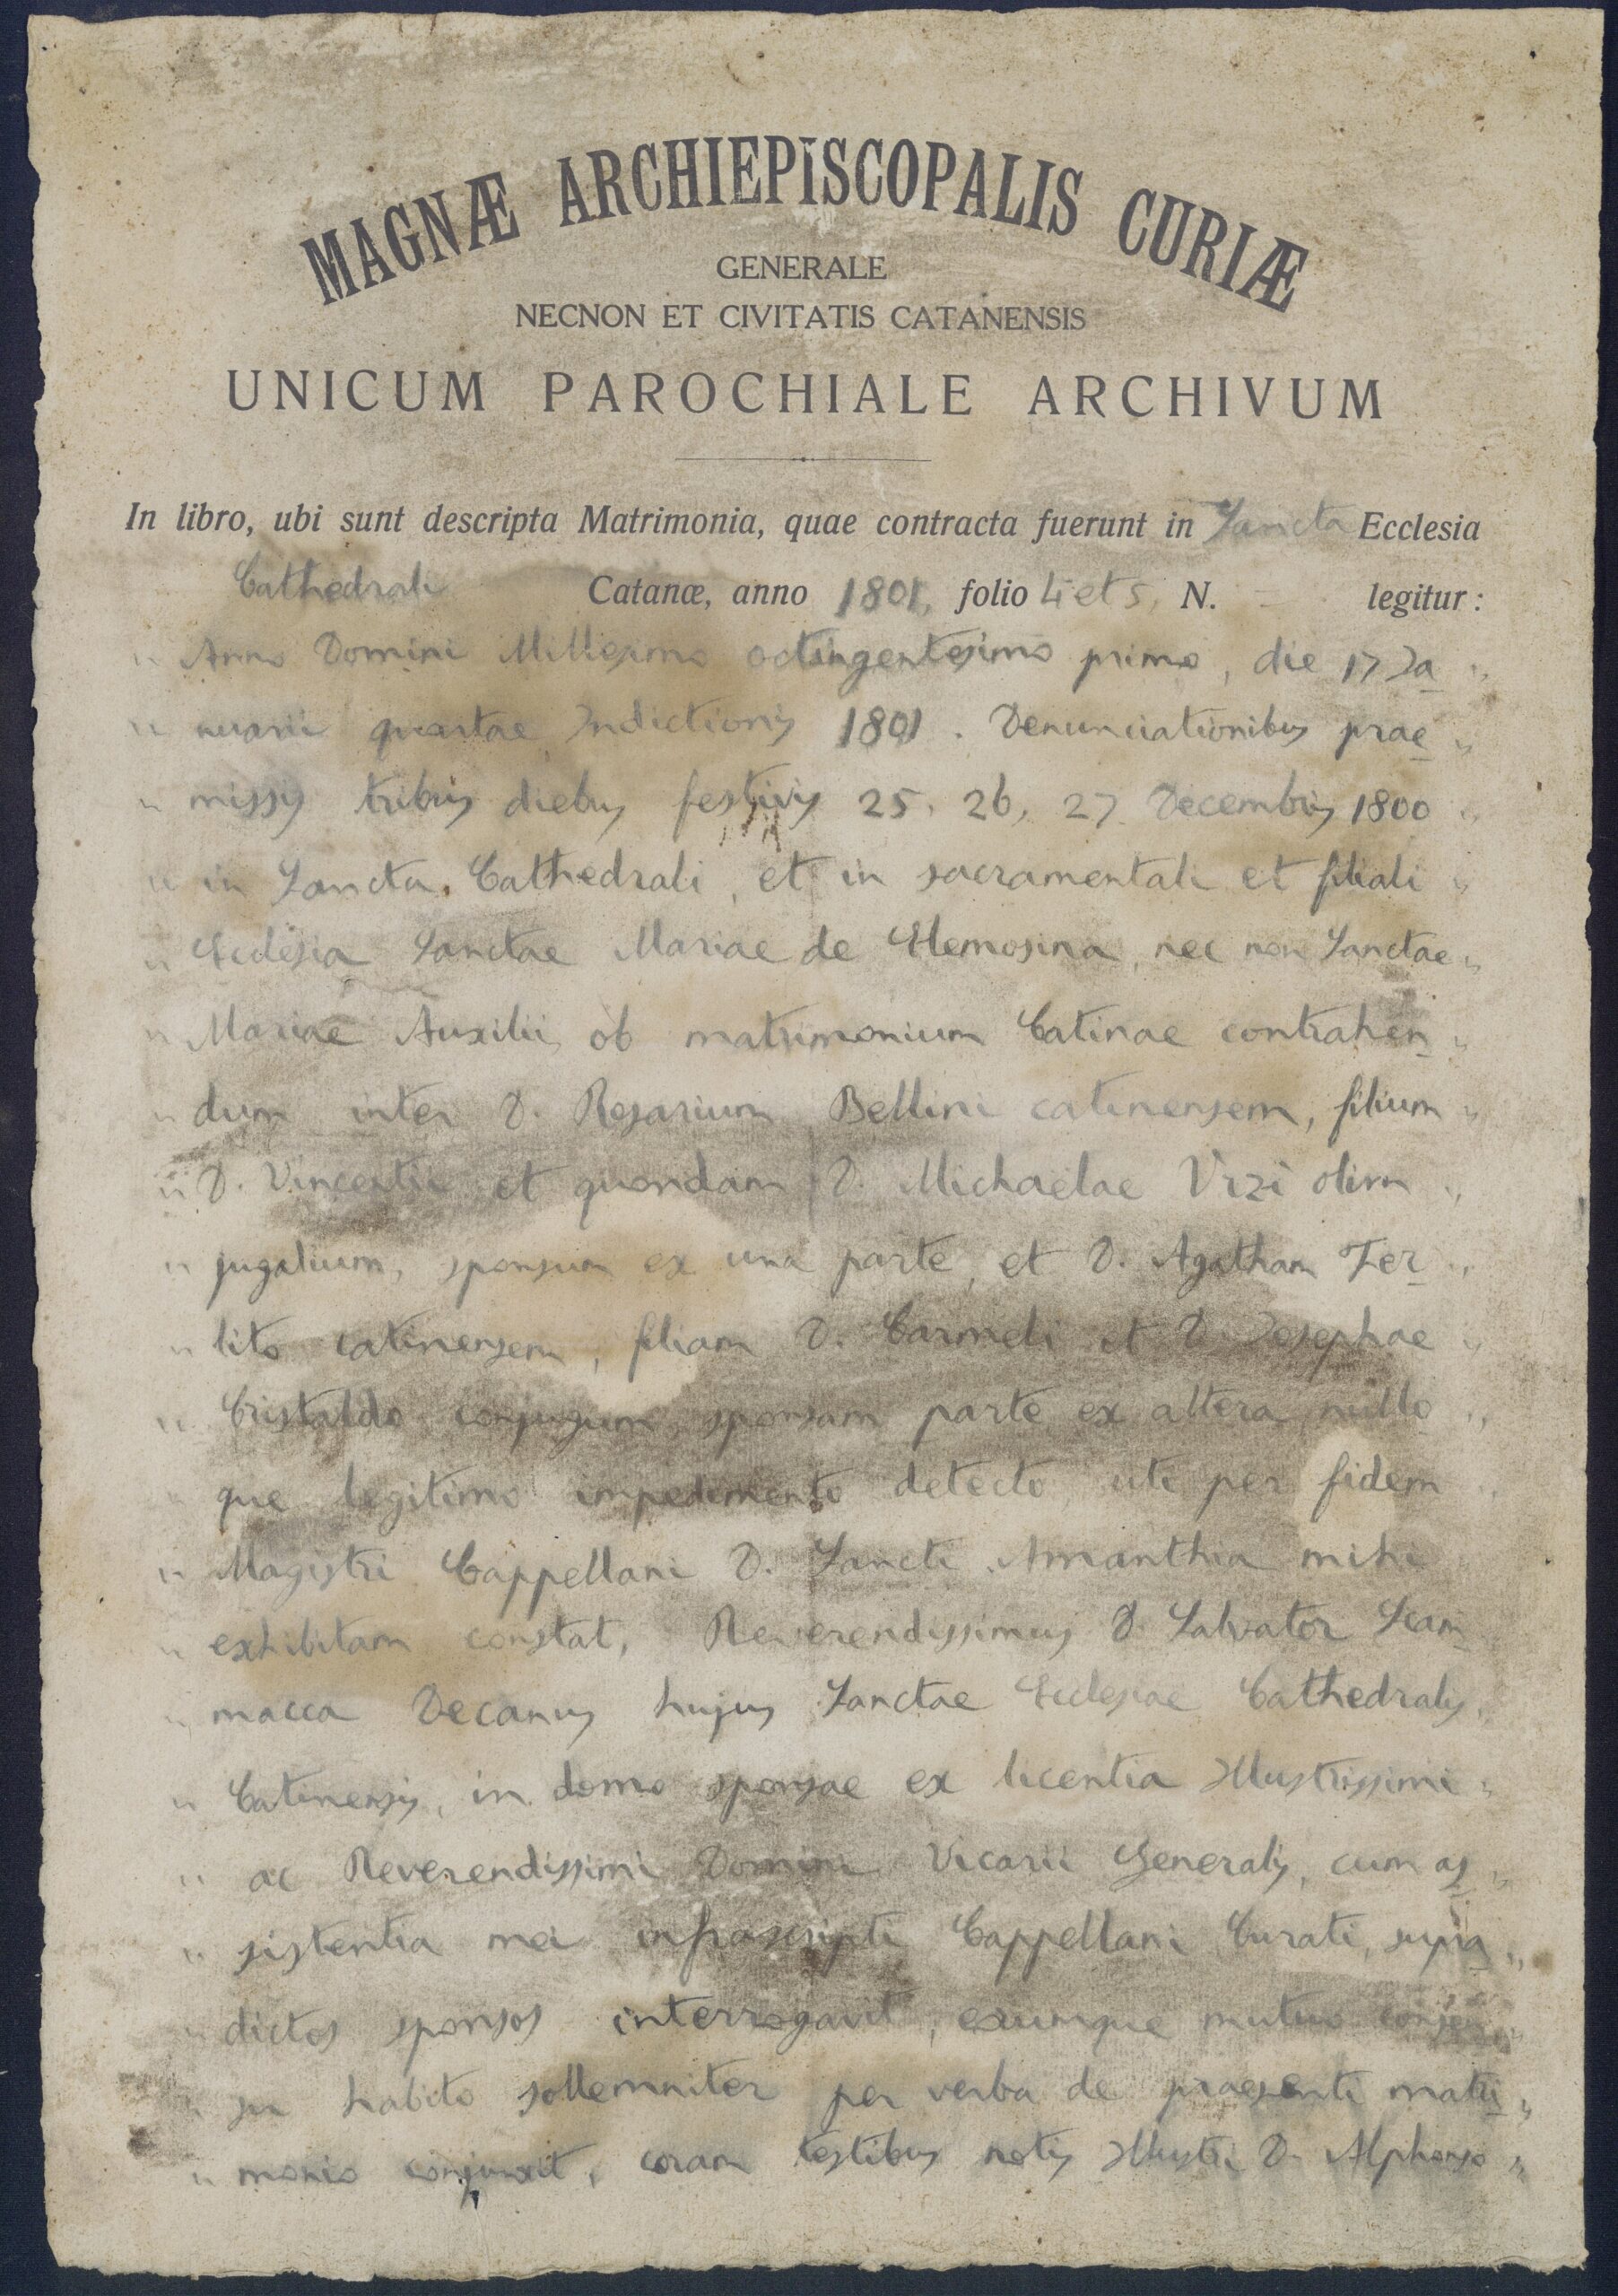 MAGNÆ ARCHIEPISCOPALIS CURIÆ
GENERALE
NECNON ET CIVITATIS CATANENSIS
UNICUM PAROCHIALE ARCHIVUM
In libro, ubi sunt descripta Matrimonia, quae contracta fuerunt in Sancta Ecclesia
Cathedrali Catanæ, anno 1801, folio 4 et 5, N. — legitur :
" Anno Domini Millesimo octingentesimo primo, die 17 Ja "
" nuarii quartae Indictionis 1801. Denunciationibus prae "
" missis tribus diebus festivis 25, 26, 27 Decembris 1800 "
" in Sancta Cathedrali, et in sacramentali et filiali "
" Ecclesia Sanctae Mariae de Elemosina, nec non Sanctae "
" Mariae Auxilii, ob matrimonium Catinae contrahen "
" dum inter D. Rosarium Bellini catinensem, filium "
" D. Vincentii et quondam D. Michaelae Virzì olim "
" jugalium, sponsum ex una parte, et D. Agatham Fer "
" lito catinensem, filiam D. Carmeli et D. Josephae "
" Cristaldo conjugum, sponsam parte ex altera, nullo "
" que legitimo impedimento detecto, uti per fidem "
" Magistri Cappellani D. Sancti Amanthia mihi
" exhibitam constat, Reverendissimus D. Salvator Scam
" macca Decanus hujus Sanctae Ecclesiae Cathedralis,
" Catinensis, in domo sponsae ex licentia Illustrissimi "
" ac Reverendissimi Domini Vicarii Generalis, cum as "
" sistentia mei infrascripti Cappellani Curati, supra "
" dictos sponsos interrogavit, eorumque mutuo consen "
" su habito sollemniter per verba de praesenti matri "
" monio conjunxit, coram testibus notis Illustri D. Alphonso "